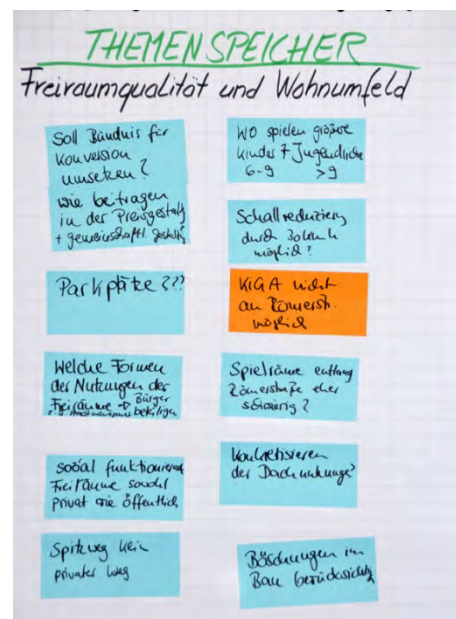 THEMENSPEICHER
Freiraumqualität und Wohnumfeld
Soll Bündnis für
Konversion
umsetzen?
wie beitragen
in der Preisgestalt
+ gemeinschaftl. Gestaltg
Parkplätze???
Welche Formen
der Nutzungen der
Freiräume → Bürger
beteiligen
sozial funktionierend
Freiräume sowohl
privat wie öffentlich
Spitzweg kein
privater Weg
Wo spielen größere
Kinder + Jugendliche
6-9 >9
Schallreduzierg
durch
möglich?
KIGA nicht
an Römerstr.
möglich
Spielräume entlang
Römerstraße eher
schwierig?
Konkretisieren
der Dachnutzung?
Böschungen im
Bau berücksichtg